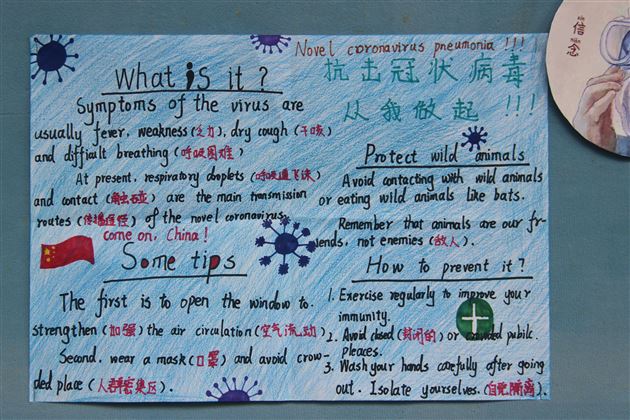 Novel coronavirus pneumonia !!!
抗击冠状病毒
从我做起 !!!
What is it?
Symptoms of the virus are
usually fever, weakness (乏力), dry cough (干咳)
and difficult breathing (呼吸困难)
At present, respiratory droplets (呼吸道飞沫)
and contact (触碰) are the main transmission
routes (传播途径) of the novel coronavirus.
come on, China!
Some tips
The first is to open the window to
strengthen (加强) the air circulation (空气流动).
Second, wear a mask (口罩) and avoid crow-
ded place (人群密集区).
Protect wild animals
Avoid contacting with wild animals
or eating wild animals like bats.
Remember that animals are our fri-
ends, not enemies (敌人).
How to prevent it?
1. Exercise regularly to improve your
immunity.
2. Avoid closed (封闭的) or crowded public
pleaces.
3. Wash your hands carefully after going
out. Isolate yourselves. (自觉隔离).
信
念